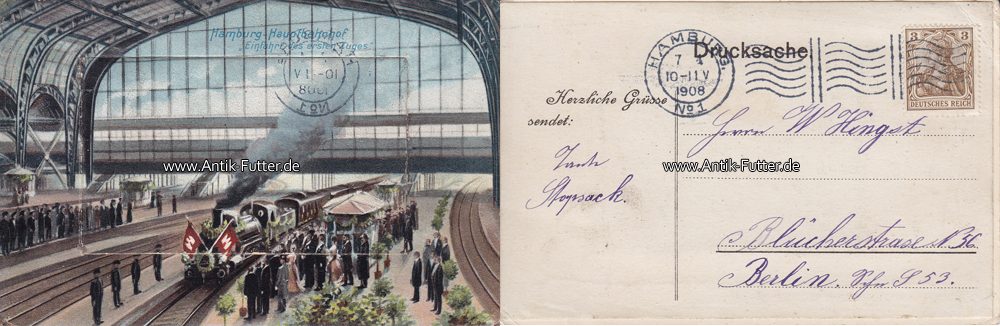 Hamburg-Hauptbahnhof
"Einfahrt des ersten Zuges"
www.Antik-Futter.de
Drucksache
HAMBURG.
7 4
10-11V
1908
No1
3 3
DEUTSCHES REICH
Herzliche Grüsse
sendet:
Tante
Stopsack.
Herrn W Hingst
www.Antik-Futter.de
Blücherstrase N 36
Berlin. S 53.